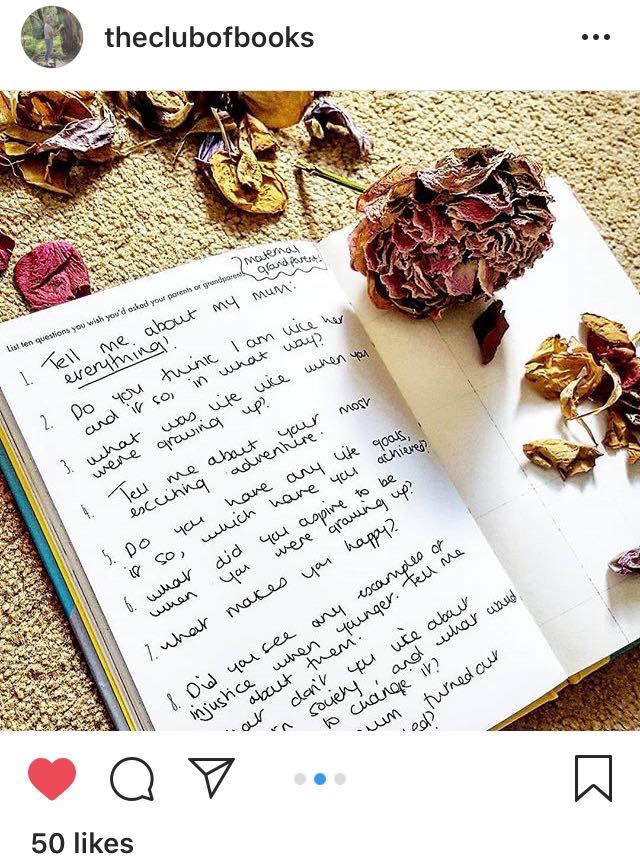 theclubofbooks
maternal
grandparent!
List ten questions you wish you'd asked your parents or grandparents
1. Tell me about my mum:
everything!
2. Do you think I am like her
and if so, in what way?
3. what was life like when you
were growing up?
4. Tell me about your most
exciting adventure.
5. Do you have any life goals,
if so, which have you achieved?
6. what did you aspire to be
when you were growing up?
7. what makes you happy?
8. Did you see any examples of
injustice when younger. Tell me
about them.
don't you like about
society, and what would
to change it?
mum turned out
50 likes